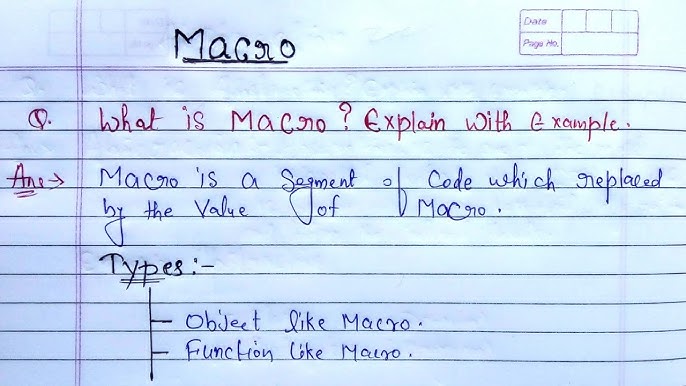 Date
Page No.
Macro
Q. What is Macro? Explain with Example.
Ans→ Macro is a Segment of Code which replaced
by the Value of Macro.
Types:-
Object like Macro.
Function like Macro.